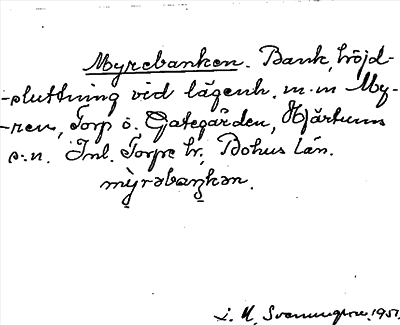 Myrebanken. Bank, höjd-
-sluttning vid lägenh. m. n My-
-ren, Torp ö. Gategården, Hjärtums
s:n. Inl. Torpe hr, Bohus län.
mỳrəbaŋkən.
J. M. Svenungson. 1951.